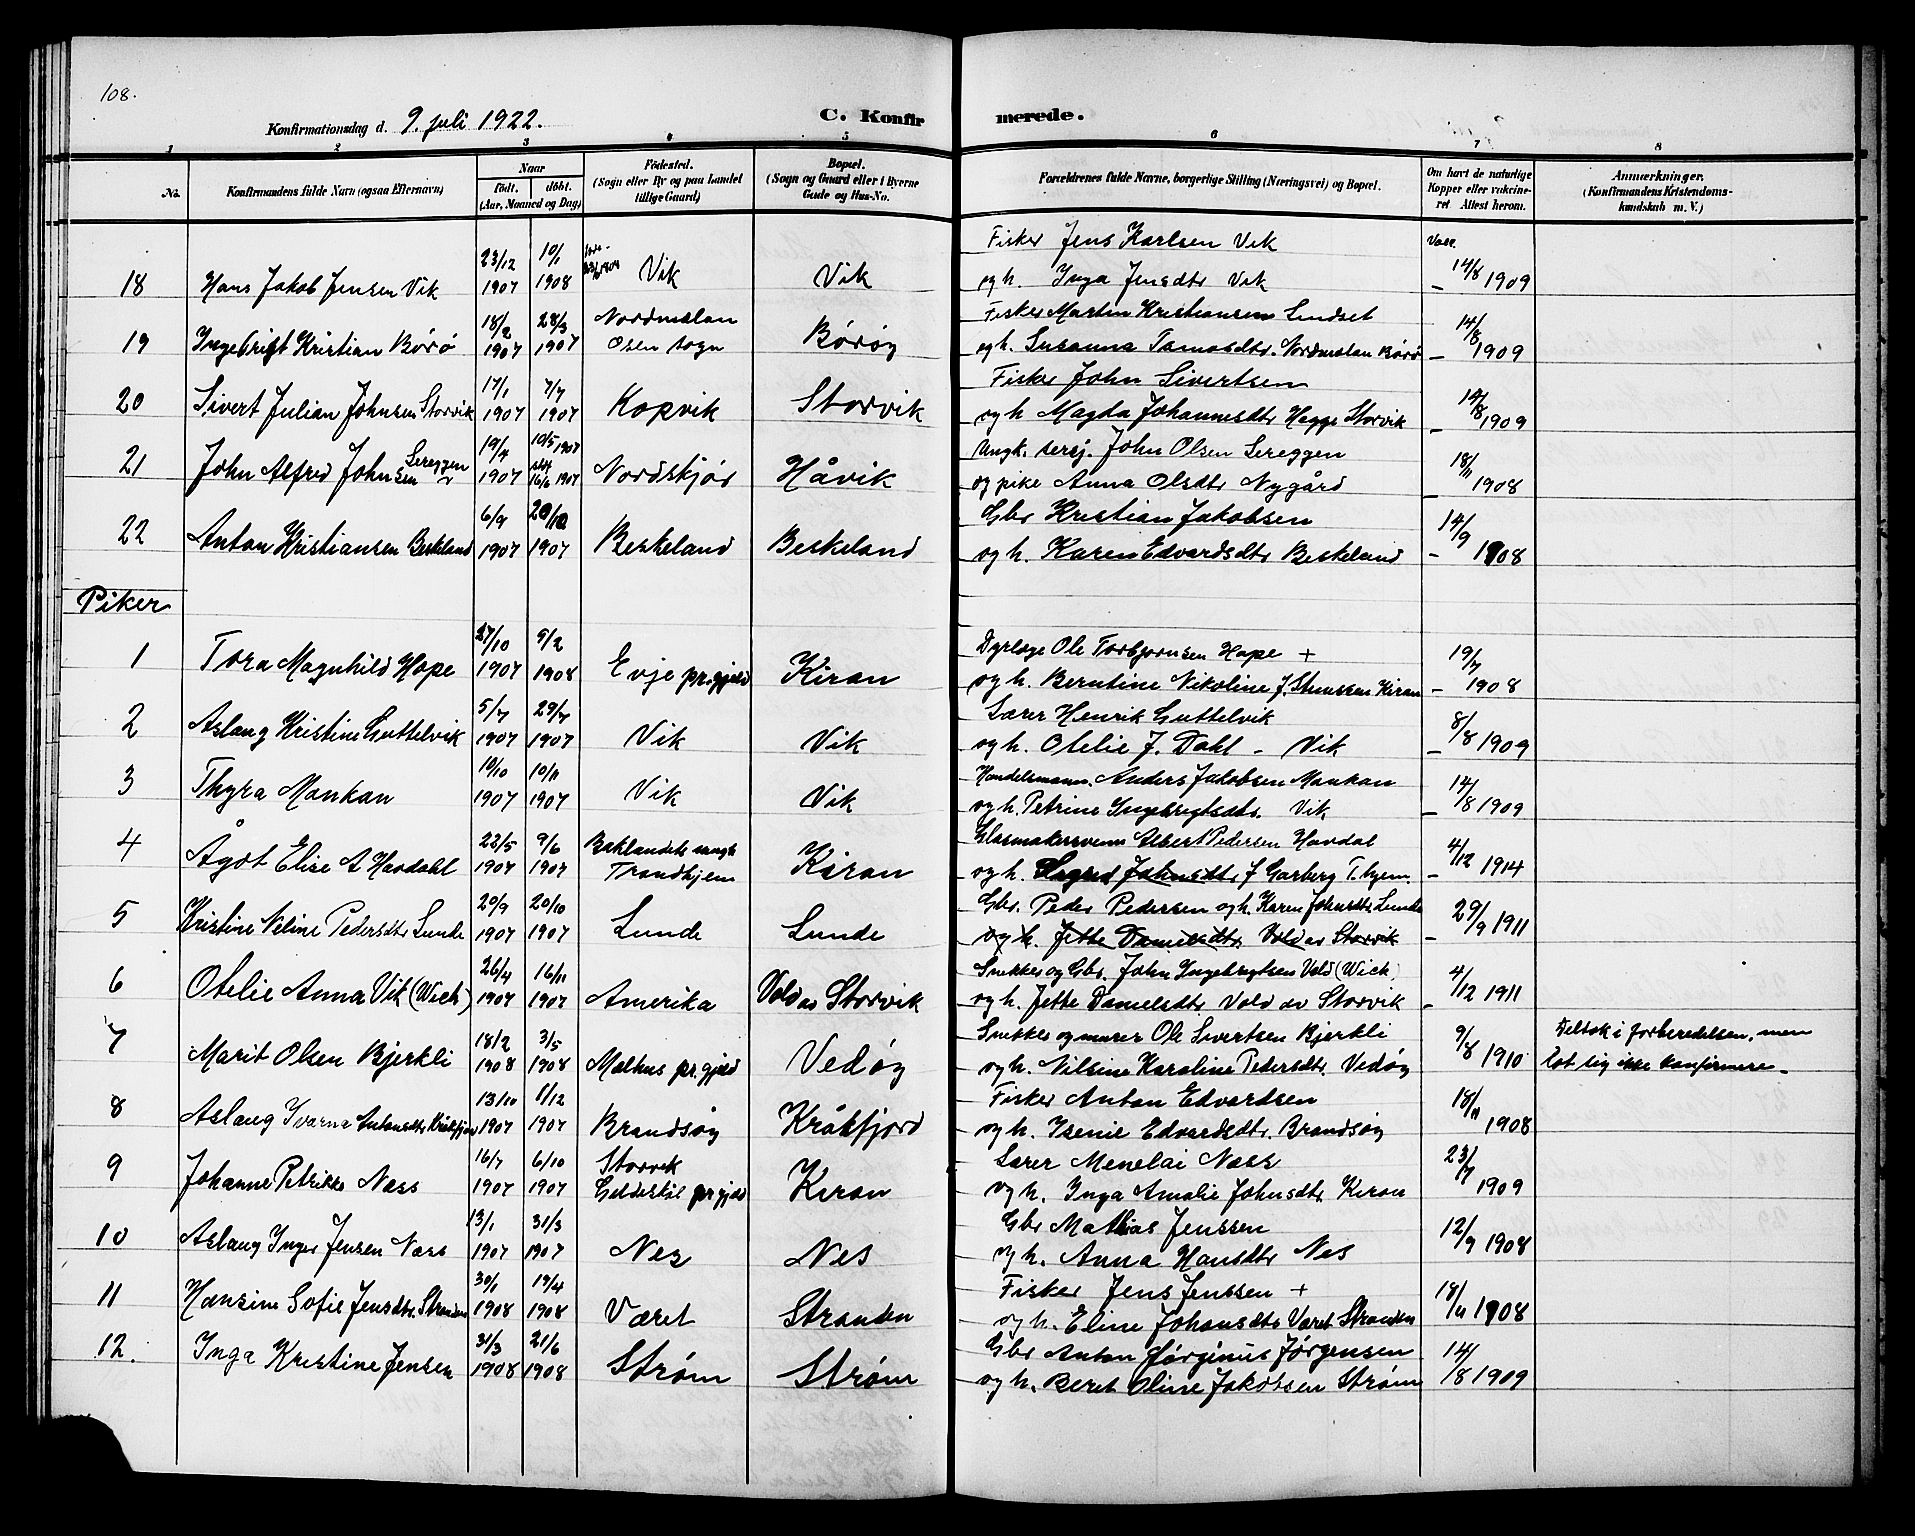 108.
Konfirmationsdag d. 9. juli 1922.
C. Konfirmerede.
1 2 3 4 5 6 7 8
No. Konfirmandens fulde Navn (ogsaa Efternavn)
Naar født. døbt. (Aar, Maaned og Dag)
Fødested. (Sogn eller By og paa Landet tillige Gaard)
Bopæl. (Sogn og Gaard eller i Byerne Gade og Hus-No.
Forældrenes fulde Navne, borgerlige Stilling (Næringsvei) og Bopæl.
Om havt de naturlige Kopper eller vakcineret Attest herom.
Anmærkninger. (Konfirmandens Kristendomskundskab m. V.)
18 Hans Jakob Jensen Vik 23/12 1907 10/1 1908 Vik Vik Fisker Jens Karlsen Vik
og h. Inga Jensdtr Vik Vacc. 14/8 1909
19 Ingebrigt Kristian Børø 18/2 1907 28/3 1907 Nordmelan Osen sogn Børøy Fisker Martin Kristiansen Sundset
og h. Susanna Tomasdtr. Nordmelan Børø – 14/8 1909
20 Sivert Julian Johnsen Storvik 17/1 1907 7/7 1907 Kopvik Storvik Fisker John Sivertsen
og h Magda Johannesdtr Hegge Storvik – 14/8 1909
21 John Alfred Johnsen Sereggen 19/4 1907 10/5 1907 16/6 1907 Nordskjør Håvik Ungk. sersj. John Olsen Sereggen
og pike Anna Olsdtr Nygård – 18/11 1908
22 Anton Kristiansen Beskeland 6/9 1907 20/10 1907 Beskeland Beskeland Gbr Kristian Jakobsen
og h. Karen Edvardsdtr Beskeland – 14/9 1908
Piker
1 Tora Magnhild Hope 27/10 1907 9/2 1908 Evje pr.gjeld Kiran Dyrlæge Ole Torbjørnsen Hope +
og h. Berntine Nikoline J. Kiran – 19/7 1908
2 Aslaug Kristine Guttelvik 5/7 1907 29/7 1907 Vik Vik Lærer Henrik Guttelvik
og h. Otelie J. Dahl – Vik – 8/8 1909
3 Thyra Mankan 10/10 1907 10/11 1907 Vik Vik Handelsmann. Anders Jakobsen Mankan
og h. Petrine Ingebrigtsdtr. Vik 14/8 1909
4 Ågot Elise A Havdahl 22/5 1907 9/6 1907 Baklandets menigh Trondhjem Kiran Glasmakersvenn Albert Pedersen Havdal
og h. Sigrid Johnsdtr J Garberg T.hjem. – 4/12 1914
5 Kristine Neline Pedersdtr Lunde 20/9 1907 20/10 1907 Lunde Lunde Gbr. Peder Pedersen og h. Karen Johnsdtr Lunde
og h. Jette Danielsdtr Vold av Storvik – 29/9 1911
6 Otelie Anna Vik (Wich) 26/4 1907 16/11 1907 Amerika Vold av Storvik Snekker og Gbr. John Ingebrigtsen Vold (Wich)
og h. Jette Danielsdtr Vold av Storvik – 4/12 1911
7 Marit Olsen Bjerkli 18/2 1908 3/5 1908 Melhus pr.gjeld Vedøy Snekker og murer Ole Sivertsen Bjerkli
og h. Nilsine Karoline Pedersdtr. Vedøy 9/8 1910 Deltok i forberedelsen, men
lot sig ikke konfirmere.
8 Aslaug Ivarna Antonsdtr Kråkfjord 13/10 1907 1/12 1907 Brandsøy Kråkfjord Fisker Anton Edvardsen
og h. Isenie Edvardsdtr. Brandsøy 18/11 1908
9 Johanne Petrikke Næss 16/7 1907 6/10 1907 Storvik Gildeskål pr.gjeld Kiran Lærer Menelai Næss
og h. Inga Amalie Johnsdtr Kiran 23/7 1909
10 Aslaug Inger Jensen Næss 13/1 1907 31/3 1907 Nes Nes Gbr Mathias Jenssen
og h. Anna Hansdtr Nes 12/9 1908
11 Hansine Sofie Jensdtr. Stranden 30/1 1908 19/4 1908 Været Stranden Fisker Jens Jenssen +
og h. Eline Johansdtr Været Stranden 18/11 1908
12. Inga Kristine Jensen 31/3 1908 21/6 1908 Strøm Strøm Gbr Anton Jørginus Jørgensen
og h. Beret Oline Jakobsen Strøm 14/8 1909